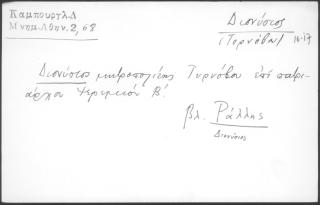 Καμπουργλ.Δ
Μνημ.Αθην.2,68
Διονύσιος
(Τορνόβου) 16-17
Διονύσιος μητροπολίτης Τυρνόβου ἐπὶ πατρι-
άρχου Ἱερεμίου Β΄.
βλ. Ράλλης
Διονύσιος